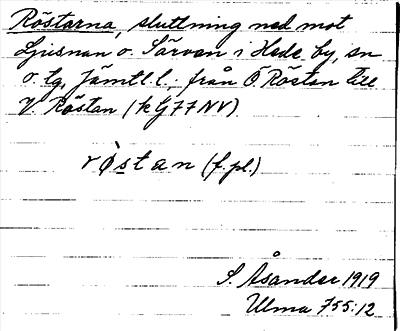 Röstarna, sluttning ned mot
Ljusnan o. Särvan i Hede by, sn
o. tg, Jämtl. l. från Ö. Röstan till
V. Röstan (kG77NV)
røstan (f. pl.)
S. Åsander 1919
Ulma 755:12